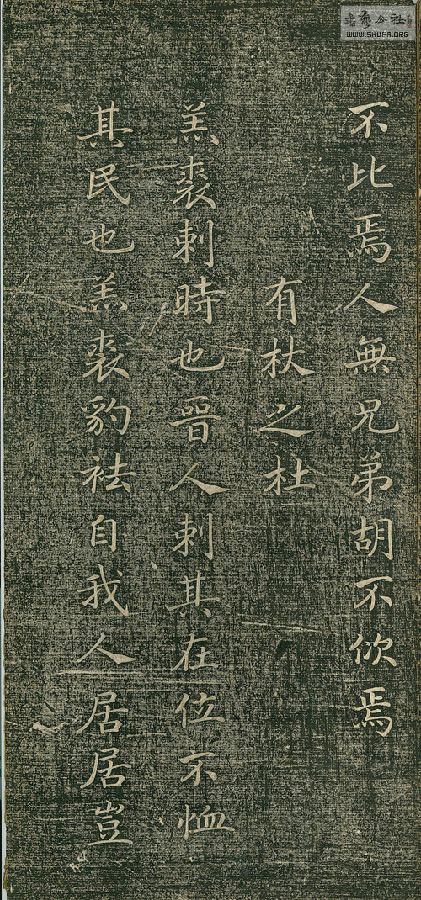 不比焉人無兄弟胡不佽焉
有杕之杜
羔裘刺時也晉人刺其在位不恤
其民也羔裘豹袪自我人居居豈
WWW.SHUFA.ORG